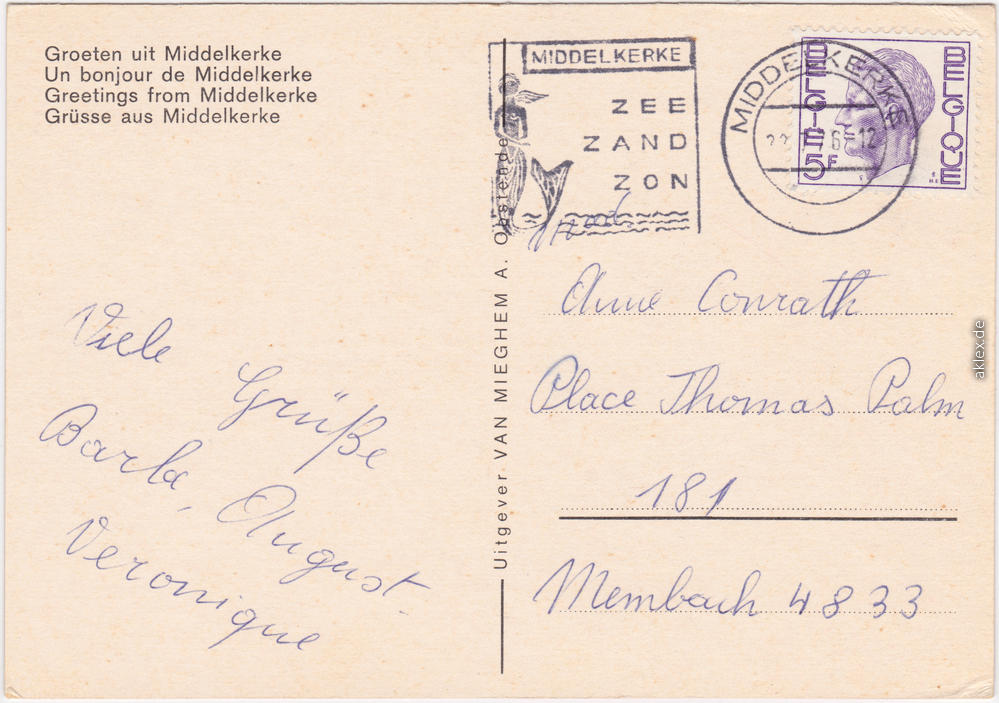 Groeten uit Middelkerke
Un bonjour de Middelkerke
Greetings from Middelkerke
Grüsse aus Middelkerke
Viele Grüße
Barla, August
Veronique
Uitgever VAN MIEGHEM A. Oostende
MIDDELKERKE
ZEE
ZAND
ZON
MIDDELKERKE
12
BELGIE 5F
BELGIQUE
Anne Conrath
Place Thomas Palm
181
Membach 4833
aklex.de